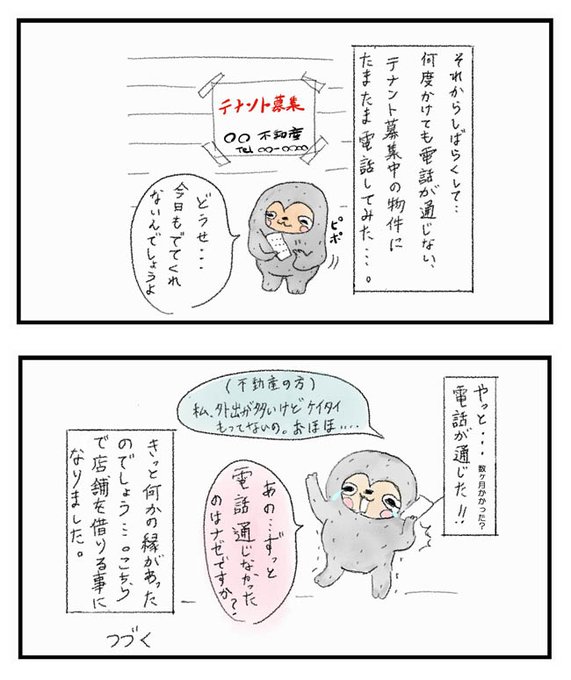 それからしばらくして…
何度かけても電話が通じない、
テナント募集中の物件に
たまたま電話してみた…。
テナント募集
○○ 不動産
Tel ○○-○○○○
ピポ
どうせ...
今日もでてくれ
ないんでしょうよ
やっと...
電話が通じた!!
数ヶ月かかった?
(不動産の方)
私、外出が多いけどケイタイ
もってないの。おほほ....
あの...ずっと
電話通じなかった
のはナゼですか?
きっと何かの縁があった
のでしょう...。こちら
で店舗を借りる事に
なりました。
つづく